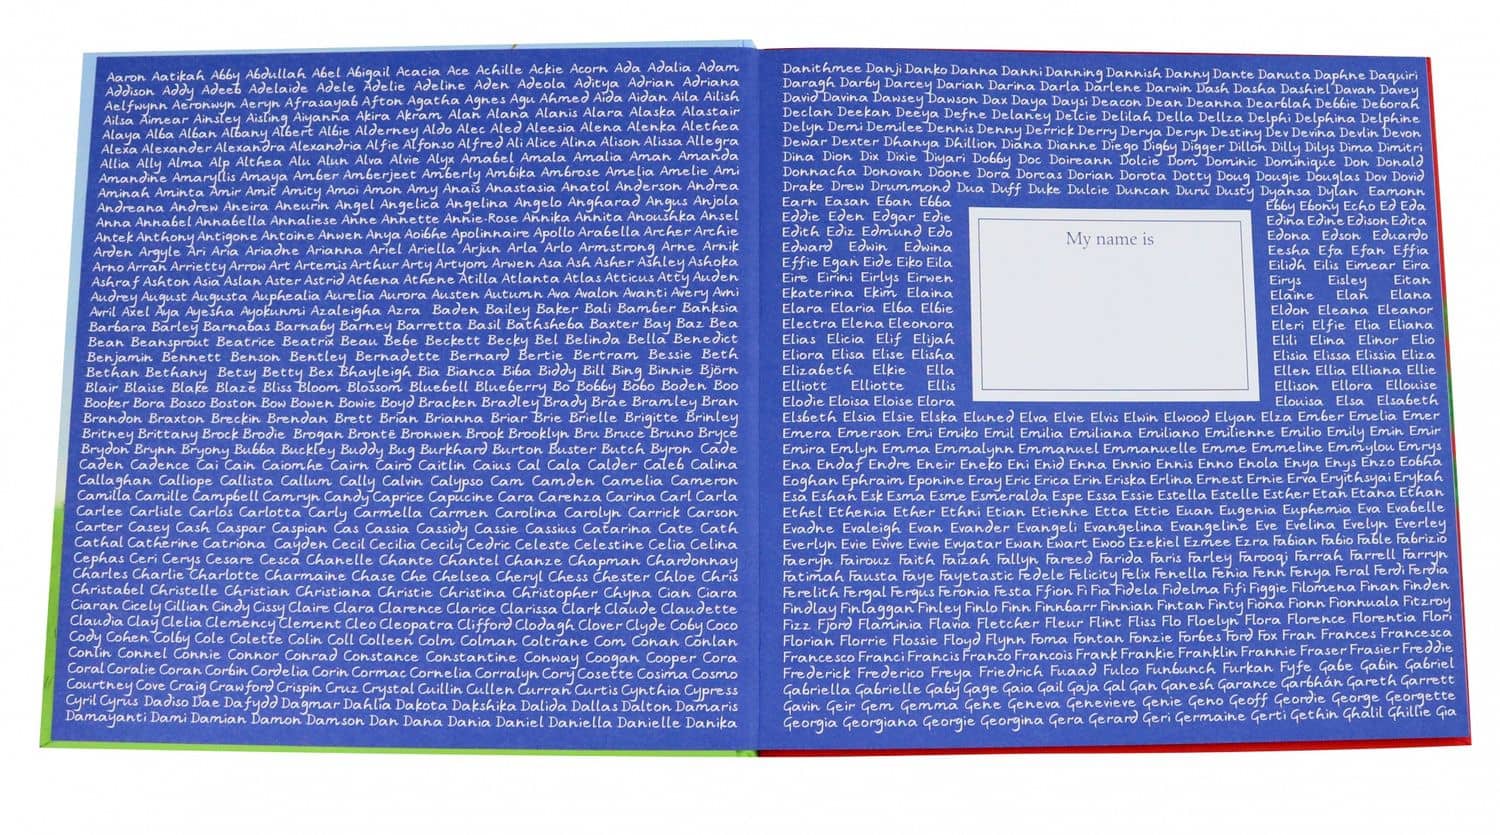 Aaron Aatikah Abby Abdullah Abel Abigail Acacia Ace Achille Ackie Acorn Ada Adalia Adam
Addison Addy Adeeb Adelaide Adele Adelie Adeline Aden Adeola Aditya Adrian Adriana
Aelfwynn Aeronwyn Aeryn Afrasayab Afton Agatha Agnes Agu Ahmed Aida Aidan Aila Ailish
Ailsa Aimear Ainsley Aisling Aiyanna Akira Akram Alan Alana Alanis Alara Alaska Alastair
Alaya Alba Alban Albany Albert Albie Alderney Aldo Alec Aled Aleesia Alena Alenka Alethea
Alexa Alexander Alexandra Alexandria Alfie Alfonso Alfred Ali Alice Alina Alison Alissa Allegra
Allia Ally Alma Alp Althea Alu Alun Alva Alvie Alyx Amabel Amala Amalia Aman Amanda
Amandine Amaryllis Amaya Amber Amberjeet Amberly Ambika Ambrose Amelia Amelie Ami
Aminah Aminta Amir Amit Amity Amoi Amon Amy Anaïs Anastasia Anatol Anderson Andrea
Andreana Andrew Aneira Aneurin Angel Angelica Angelina Angelo Angharad Angus Anjola
Anna Annabel Annabella Annaliese Anne Annette Annie-Rose Annika Annita Anoushka Ansel
Antek Anthony Antigone Antoine Anwen Anya Aoibhe Apolinnaire Apollo Arabella Archer Archie
Arden Argyle Ari Aria Ariadne Arianna Ariel Ariella Arjun Arla Arlo Armstrong Arne Arnik
Arno Arran Arrietty Arrow Art Artemis Arthur Arty Artyom Arwen Asa Ash Asher Ashley Ashoka
Ashraf Ashton Asia Aslan Aster Astrid Athena Athene Atilla Atlanta Atlas Atticus Atty Auden
Audrey August Augusta Auphealia Aurelia Aurora Austen Autumn Ava Avalon Avanti Avery Avni
Avril Axel Aya Ayesha Ayokunmi Azaleigha Azra Baden Bailey Baker Bali Bamber Banksia
Barbara Barley Barnabas Barnaby Barney Barretta Basil Bathsheba Baxter Bay Baz Bea
Bean Beansprout Beatrice Beatrix Beau Bebe Beckett Becky Bel Belinda Bella Benedict
Benjamin Bennett Benson Bentley Bernadette Bernard Bertie Bertram Bessie Beth
Bethan Bethany Betsy Betty Bex Bhayleigh Bia Bianca Biba Biddy Bill Bing Binnie Björn
Blair Blaise Blake Blaze Bliss Bloom Blossom Bluebell Blueberry Bo Bobby Bobo Boden Boo
Booker Bora Bosco Boston Bow Bowen Bowie Boyd Bracken Bradley Brady Brae Bramley Bran
Brandon Braxton Breckin Brendan Brett Brian Brianna Briar Brie Brielle Brigitte Brinley
Britney Brittany Brock Brodie Brogan Brontë Bronwen Brook Brooklyn Bru Bruce Bruno Bryce
Brydon Brynn Bryony Bubba Buckley Buddy Bug Burkhard Burton Buster Butch Byron Cade
Caden Cadence Cai Cain Caiomhe Cairn Cairo Caitlin Caius Cal Cala Calder Caleb Calina
Callaghan Calliope Callista Callum Cally Calvin Calypso Cam Camden Camelia Cameron
Camilla Camille Campbell Camryn Candy Caprice Capucine Cara Carenza Carina Carl Carla
Carlee Carlisle Carlos Carlotta Carly Carmella Carmen Carolina Carolyn Carrick Carson
Carter Casey Cash Caspar Caspian Cas Cassia Cassidy Cassie Cassius Catarina Cate Cath
Cathal Catherine Catriona Cayden Cecil Cecilia Cecily Cedric Celeste Celestine Celia Celina
Cephas Ceri Cerys Cesare Cesca Chanelle Chante Chantel Chanze Chapman Chardonnay
Charles Charlie Charlotte Charmaine Chase Che Chelsea Cheryl Chess Chester Chloe Chris
Christabel Christelle Christian Christiana Christie Christina Christopher Chyna Cian Ciara
Ciaran Cicely Cillian Cindy Cissy Claire Clara Clarence Clarice Clarissa Clark Claude Claudette
Claudia Clay Clelia Clemency Clement Cleo Cleopatra Clifford Clodagh Clover Clyde Coby Coco
Cody Cohen Colby Cole Colette Colin Coll Colleen Colm Colman Coltrane Com Conan Conlan
Conlin Connel Connie Connor Conrad Constance Constantine Conway Coogan Cooper Cora
Coral Coralie Coran Corbin Cordelia Corin Cormac Cornelia Corralyn Cory Cosette Cosima Cosmo
Courtney Cove Craig Crawford Crispin Cruz Crystal Cuillin Cullen Curran Curtis Cynthia Cypress
Cyril Cyrus Dadiso Dae Dafydd Dagmar Dahlia Dakota Dakshika Dalida Dallas Dalton Damaris
Damayanti Dami Damian Damon Damson Dan Dana Dania Daniel Daniella Danielle Danika
Danithmee Danji Danko Danna Danni Danning Dannish Danny Dante Danuta Daphne Daquiri
Daragh Darby Darcey Darian Darina Darla Darlene Darwin Dash Dasha Dashiel Davan Davey
David Davina Dawsey Dawson Dax Daya Daysi Deacon Dean Deanna Dearblah Debbie Deborah
Declan Deekan Deeya Defne Delaney Delcie Delilah Della Dellza Delphi Delphina Delphine
Delyn Demi Demilee Dennis Denny Derrick Derry Derya Deryn Destiny Dev Devina Devlin Devon
Dewar Dexter Dhanya Dhillion Diana Dianne Diego Digby Digger Dillon Dilly Dilys Dima Dimitri
Dina Dion Dix Dixie Diyari Dobby Doc Doireann Dolcie Dom Dominic Dominique Don Donald
Donnacha Donovan Doone Dora Dorcas Dorian Dorota Dotty Doug Dougie Douglas Dov Dovid
Drake Drew Drummond Dua Duff Duke Dulcie Duncan Duru Dusty Dyansa Dylan Eamonn
Earn Easan Eban Ebba Ebby Ebony Echo Ed Eda
Eddie Eden Edgar Edie Edina Edine Edison Edita
Edith Ediz Edmund Edo Edona Edson Eduardo
Edward Edwin Edwina Eesha Efa Efan Effia
Effie Egan Eide Eiko Eila Eilidh Eilis Eimear Eira
Eire Eirini Eirlys Eirwen Eirys Eisley Eitan
Ekaterina Ekim Elaina Elaine Elan Elana
Elara Elaria Elba Elbie Eldon Eleana Eleanor
Electra Elena Eleonora Eleri Elfie Elia Eliana
Elias Elicia Elif Elijah Elili Elina Elinor Elio
Eliora Elisa Elise Elisha Elisia Elissa Elissia Eliza
Elizabeth Elkie Ella Ellen Ellia Elliana Ellie
Elliott Elliotte Ellis Ellison Ellora Ellouise
Elodie Eloisa Eloise Elora Elouisa Elsa Elsabeth
My name is
Elsbeth Elsia Elsie Elska Eluned Elva Elvie Elvis Elwin Elwood Elyan Elza Ember Emelia Emer
Emera Emerson Emi Emiko Emil Emilia Emiliana Emiliano Emilienne Emilio Emily Emin Emir
Emira Emlyn Emma Emmalynn Emmanuel Emmanuelle Emme Emmeline Emmylou Emrys
Ena Endaf Endre Eneir Eneko Eni Enid Enna Ennio Ennis Enno Enola Enya Enys Enzo Eobha
Eoghan Ephraim Eponine Eray Eric Erica Erin Eriska Erlina Ernest Ernie Erva Eryithsyai Erykah
Esa Eshan Esk Esma Esme Esmeralda Espe Essa Essie Estella Estelle Esther Etan Etana Ethan
Ethel Ethenia Ether Ethni Etian Etienne Etta Ettie Euan Eugenia Euphemia Eva Evabelle
Evadne Evaleigh Evan Evander Evangeli Evangelina Evangeline Eve Evelina Evelyn Everley
Everlyn Evie Evive Evvie Evyatar Ewan Ewart Ewoo Ezekiel Ezmee Ezra Fabian Fabio Fable Fabrizio
Faeryn Fairouz Faith Faizah Fallyn Fareed Farida Faris Farley Farooqi Farrah Farrell Farryn
Fatimah Fausta Faye Fayetastic Fedele Felicity Felix Fenella Fenia Fenn Fenya Feral Ferdi Ferdia
Ferelith Fergal Fergus Feronia Festa Ffion Fi Fia Fidela Fidelma Fifi Figgie Filomena Finan Finden
Findlay Finlaggan Finley Finlo Finn Finnbarr Finnian Fintan Finty Fiona Fionn Fionnuala Fitzroy
Fizz Fjord Flaminia Flavia Fletcher Fleur Flint Fliss Flo Floelyn Flora Florence Florentia Flori
Florian Florrie Flossie Floyd Flynn Foma Fontan Fonzie Forbes Ford Fox Fran Frances Francesca
Francesco Franci Francis Franco Francois Frank Frankie Franklin Frannie Fraser Frasier Freddie
Frederick Frederico Freya Friedrich Fuaad Fulco Funbunch Furkan Fyfe Gabe Gabin Gabriel
Gabriella Gabrielle Gaby Gage Gaia Gail Gaja Gal Gan Ganesh Garance Garbhán Gareth Garrett
Gavin Geir Gem Gemma Gene Geneva Genevieve Genie Geno Geoff Geordie George Georgette
Georgia Georgiana Georgie Georgina Gera Gerard Geri Germaine Gerti Gethin Ghalil Ghillie Gia